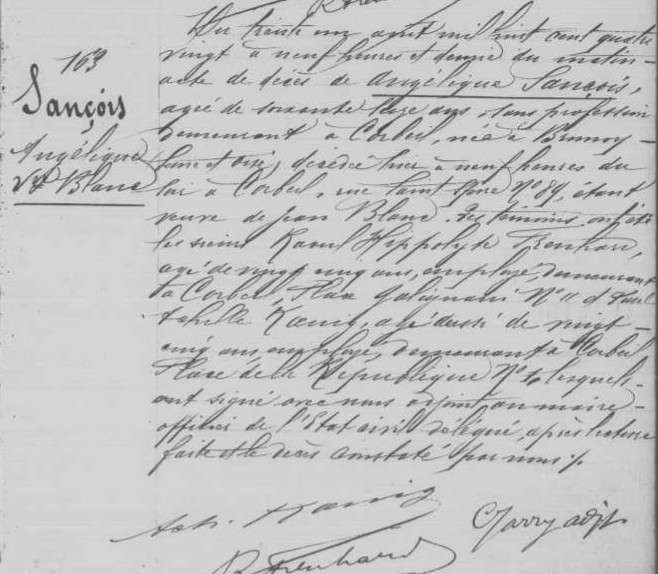 163
Sançois
Angélique
Vve Blanc
Du trente un août mil huit cent quatre
vingt à neuf heures et demie du matin
acte de décès de Angélique Sançois,
agée de soixante seize ans, sans profession
demeurant à Corbeil, née à Brunoy
Seine et Oise, décédée hier à neuf heures du
soir à Corbeil, rue Saint Spire No 89, étant
veuve de Jean Blanc. Les témoins ont été
les sieurs Raoul Hippolyte Frenhard,
agé de vingt cinq ans, employé, demeurant
à Corbeil, Place Galignani No 11 et Paul
Achille Kœnig, agé aussi de vingt
cinq ans, employé, demeurant à Corbeil
Place de la République No lesquels
ont signé avec nous adjoint au maire
officier de l'Etat civil délégué, après lecture
faite et le décès constaté par nous ;.
Ach. Kœnig
Garry adjt
R Frenhard